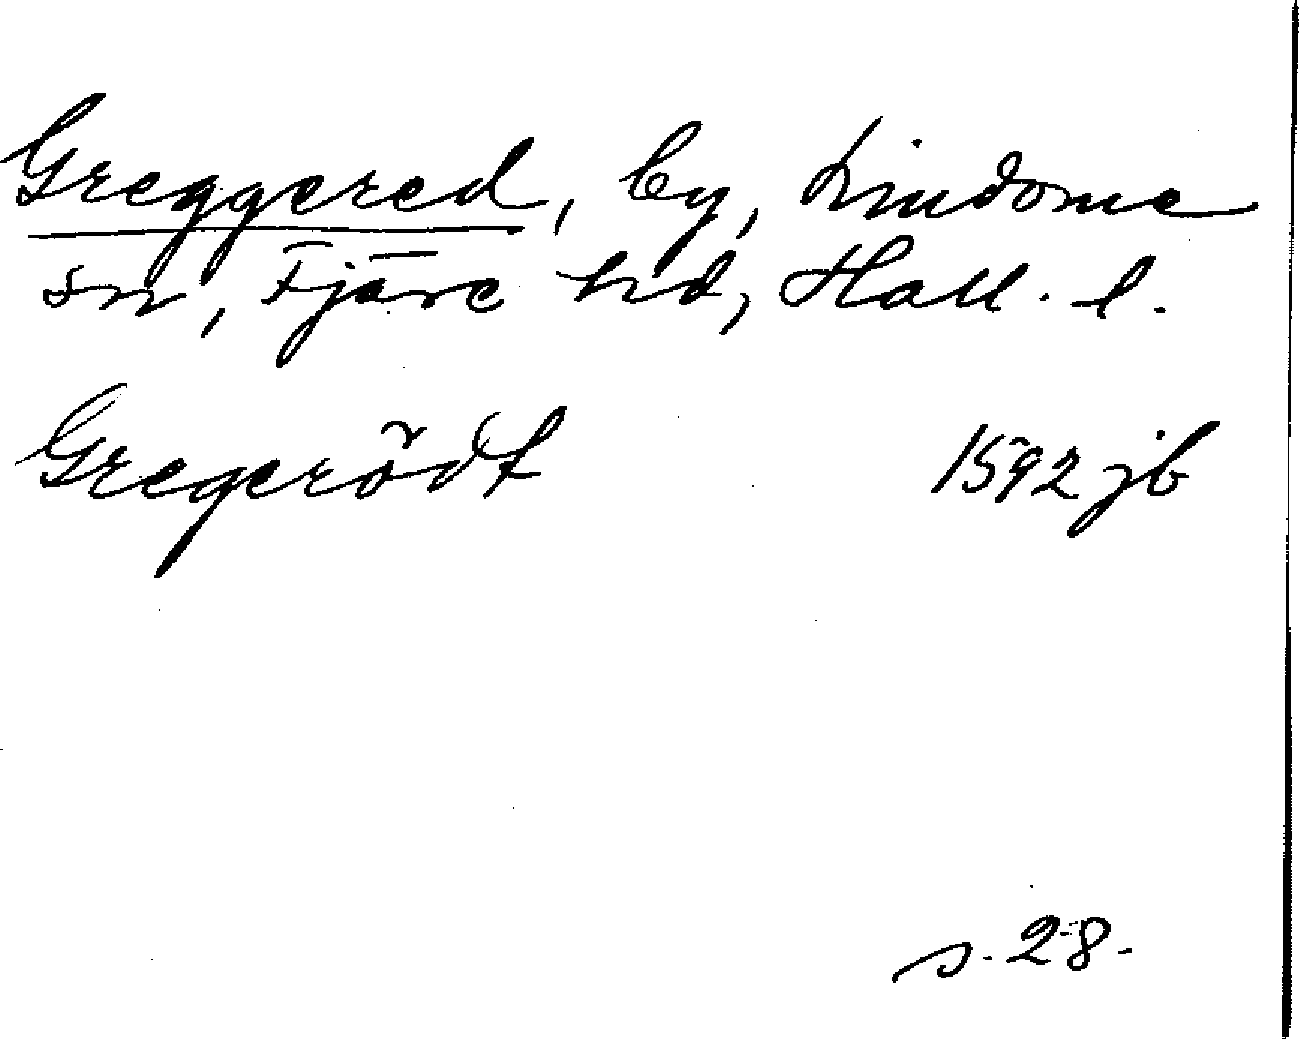 Greggered, by, Lindome
sn, Fjäre hd, Hall. l.
Gregerödt 1592 jb
s. 28.